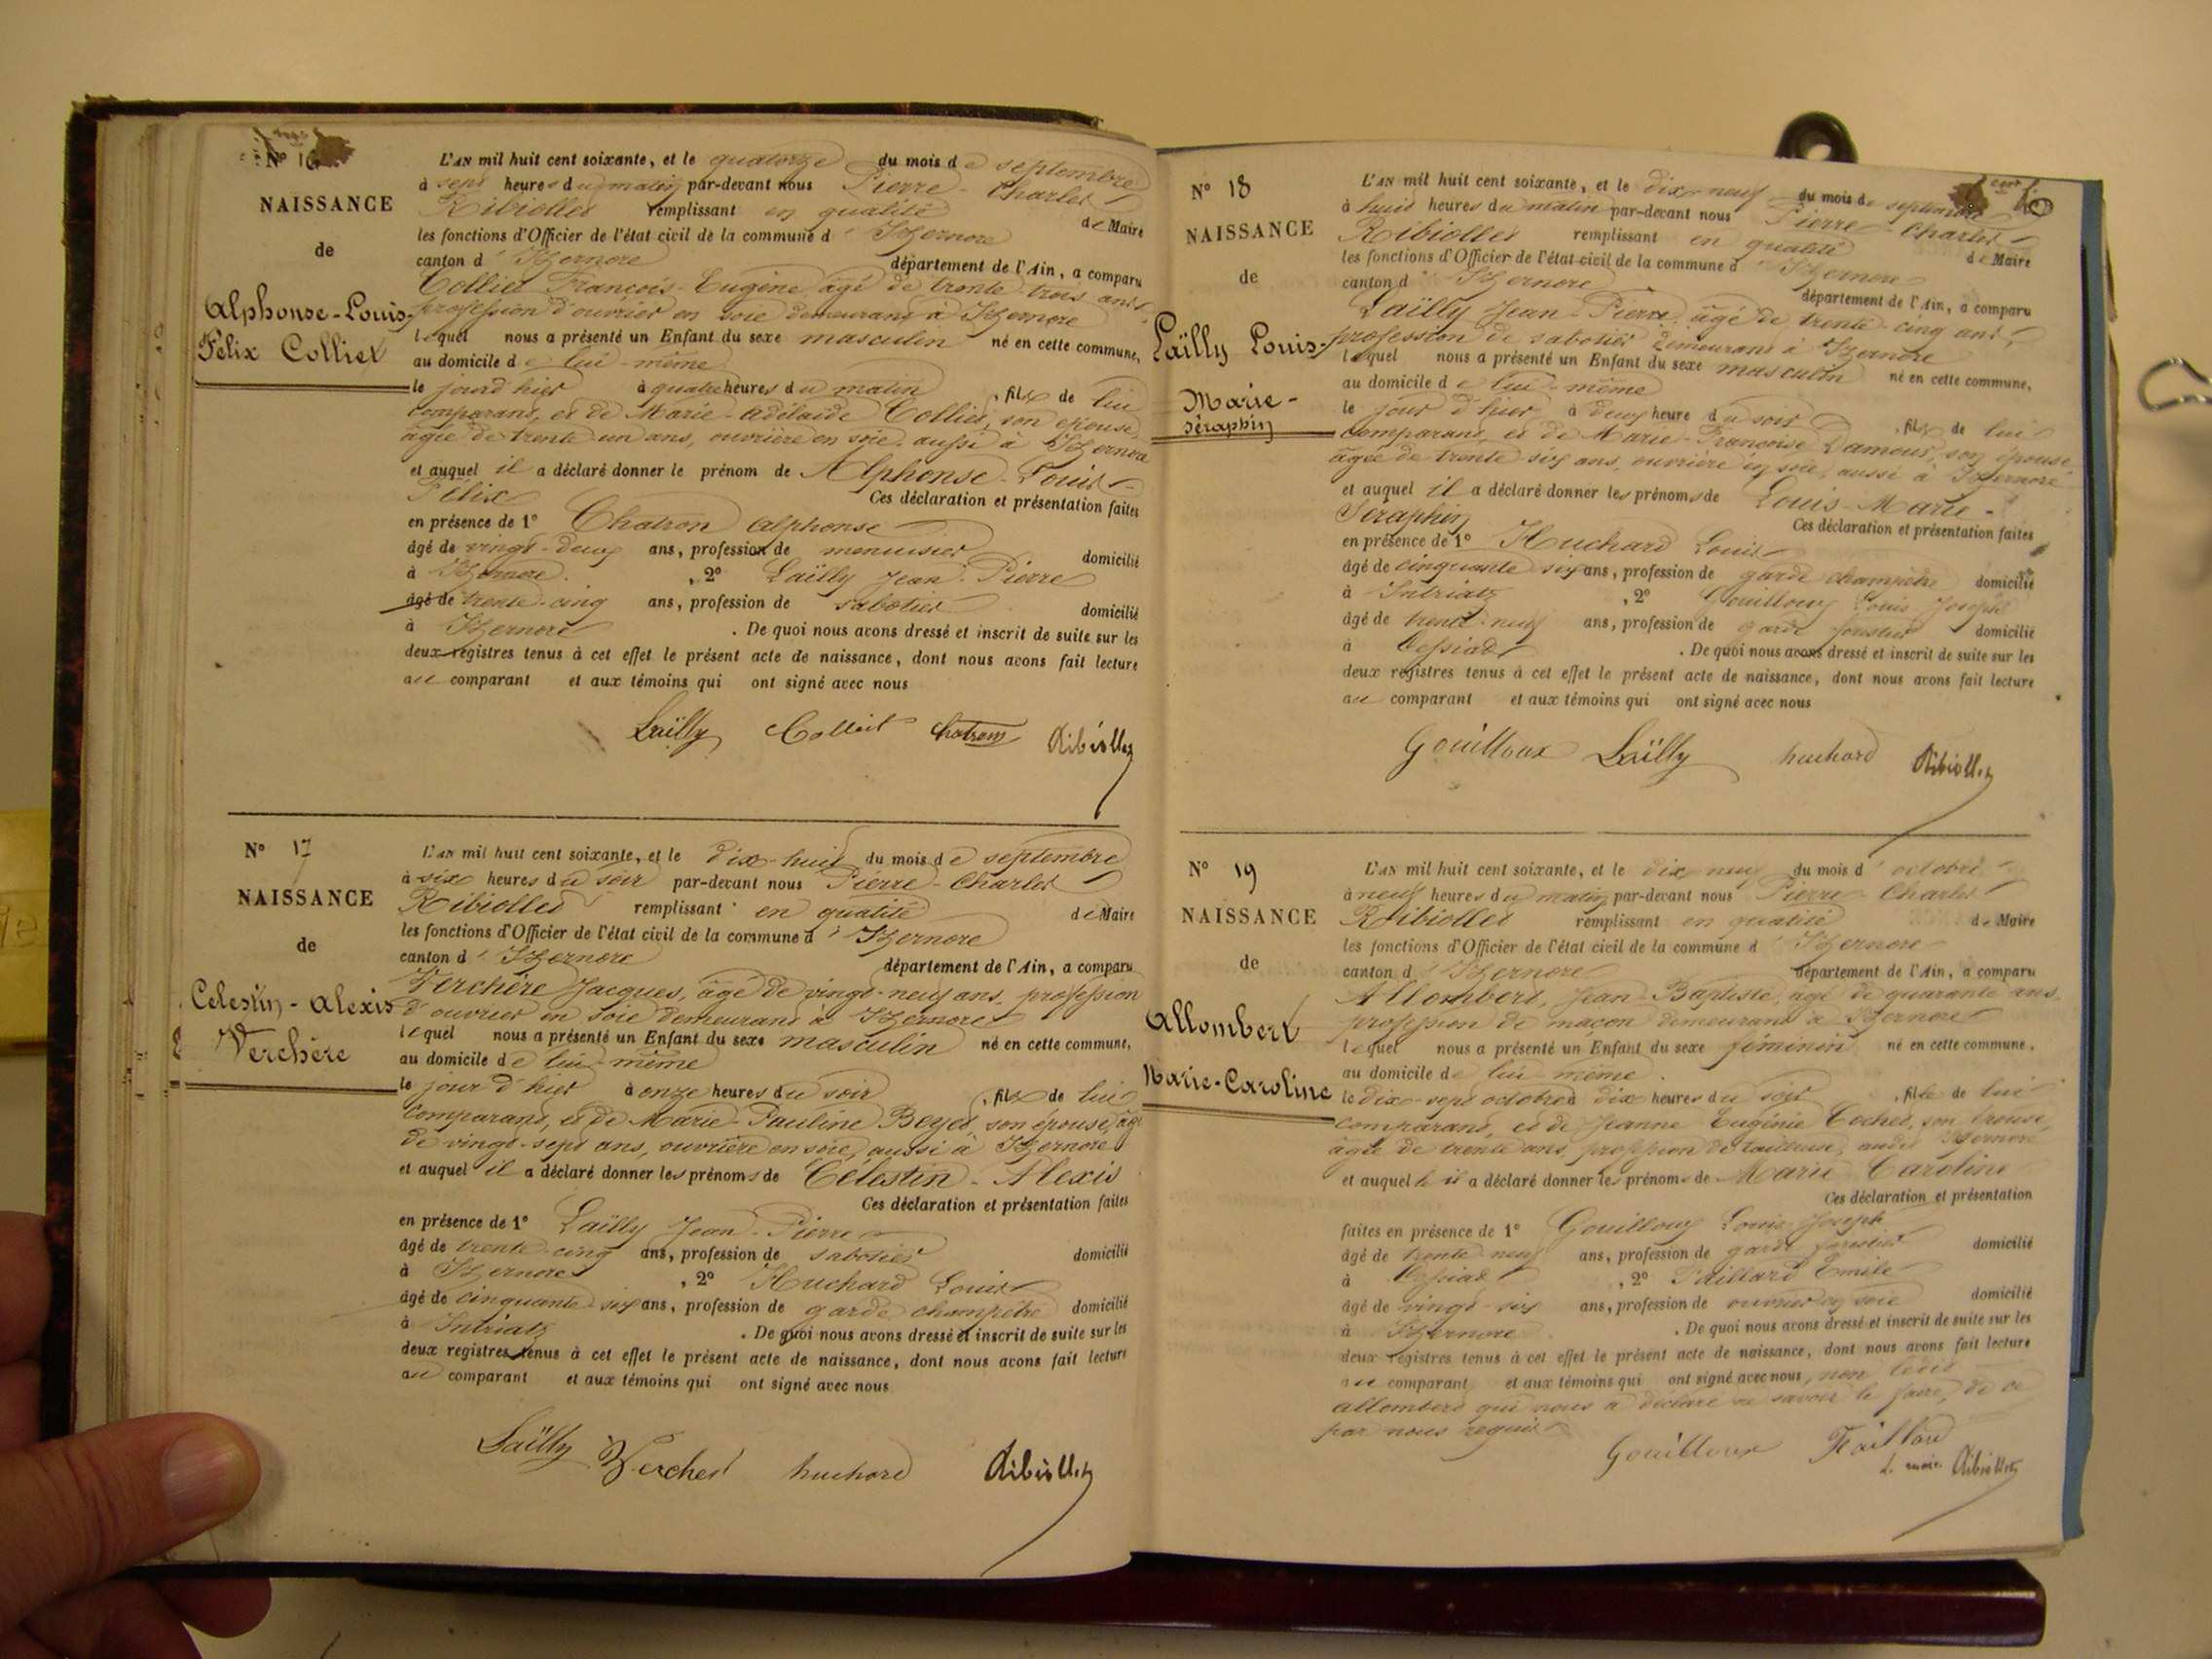 N° 16
NAISSANCE
de
Alphonse-Louis-
Félix Colliet
L'AN mil huit cent soixante, et le quatorze du mois de septembre
à sept heures du matin par-devant nous Pierre-Charles
Ribiollet remplissant en qualité de Maire
les fonctions d'Officier de l'état civil de la commune d'Izernore
canton d'Izernore département de l'Ain, a comparu
Colliet François-Eugène âgé de trente-trois ans,
profession d'ouvrier en soie demeurant à Izernore
lequel nous a présenté un Enfant du sexe masculin né en cette commune,
au domicile de lui-même
le jourd'hier à quatre heures du matin, fils de lui
comparant, et de Marie-Adélaïde Colliet, son épouse,
âgée de trente-un ans, ouvrière en soie, aussi à Izernore
et auquel il a déclaré donner le prénom de Alphonse-Louis-
Félix Ces déclaration et présentation faites
en présence de 1° Chatron Alphonse
âgé de vingt-deux ans, profession de menuisier domicilié
à Izernore, 2° Laïlly Jean-Pierre
âgé de trente-cinq ans, profession de sabotier domicilié
à Izernore. De quoi nous avons dressé et inscrit de suite sur les
deux registres tenus à cet effet le présent acte de naissance, dont nous avons fait lecture
au comparant et aux témoins qui ont signé avec nous
Laïlly Colliet Chatron Ribiollet
N° 17
NAISSANCE
de
Celestin-Alexis
Verchère
L'AN mil huit cent soixante, et le dix-huit du mois de septembre
à six heures du soir par-devant nous Pierre-Charles
Ribiollet remplissant en qualité de Maire
les fonctions d'Officier de l'état civil de la commune d'Izernore
canton d'Izernore département de l'Ain, a comparu
Verchère Jacques, âgé de vingt-neuf ans, profession
d'ouvrier en soie demeurant à Izernore
lequel nous a présenté un Enfant du sexe masculin né en cette commune,
au domicile de lui-même
le jour d'hier à onze heures du soir, fils de lui
comparant, et de Marie-Pauline Beyet, son épouse, âgée
de vingt-sept ans, ouvrière en soie, aussi à Izernore
et auquel il a déclaré donner les prénoms de Célestin-Alexis
Ces déclaration et présentation faites
en présence de 1° Laïlly Jean-Pierre
âgé de trente-cinq ans, profession de sabotier domicilié
à Izernore, 2° Huchard Louis
âgé de cinquante-six ans, profession de garde champêtre domicilié
à Intriatz. De quoi nous avons dressé et inscrit de suite sur les
deux registres tenus à cet effet le présent acte de naissance, dont nous avons fait lecture
au comparant et aux témoins qui ont signé avec nous
Laïlly Vercher huchard Ribiollet
N° 18
NAISSANCE
de
Laïlly Louis-
Marie-
Séraphin
L'AN mil huit cent soixante, et le dix-neuf du mois de septembre
à huit heures du matin par-devant nous Pierre-Charles
Ribiollet remplissant en qualité de Maire
les fonctions d'Officier de l'état civil de la commune d'Izernore
canton d'Izernore département de l'Ain, a comparu
Laïlly Jean-Pierre, âgé de trente-cinq ans,
profession de sabotier demeurant à Izernore
lequel nous a présenté un Enfant du sexe masculin né en cette commune,
au domicile de lui-même
le jour d'hier à deux heure du soir, fils de lui
comparant, et de Marie-Françoise Damour, son épouse,
âgée de trente-six ans, ouvrière en soie, aussi à Izernore
et auquel il a déclaré donner les prénoms de Louis-Marie-
Séraphin Ces déclaration et présentation faites
en présence de 1° Huchard Louis
âgé de cinquante-six ans, profession de garde champêtre domicilié
à Intriatz, 2° Gouilloux Louis Joseph
âgé de trente-neuf ans, profession de garde forestier domicilié
à Cessiat. De quoi nous avons dressé et inscrit de suite sur les
deux registres tenus à cet effet le présent acte de naissance, dont nous avons fait lecture
au comparant et aux témoins qui ont signé avec nous
Gouilloux Laïlly huchard Ribiollet
N° 19
NAISSANCE
de
Allombert
Marie-Caroline
L'AN mil huit cent soixante, et le dix neuf du mois d'octobre
à neuf heures du matin par-devant nous Pierre-Charles
Ribiollet remplissant en qualité de Maire
les fonctions d'Officier de l'état civil de la commune d'Izernore
canton d'Izernore département de l'Ain, a comparu
Allombert, Jean-Baptiste, âgé de quarante ans,
profession de maçon demeurant à Izernore
lequel nous a présenté un Enfant du sexe féminin né en cette commune,
au domicile de lui-même
le dix-sept octobre à dix heures du soir, fille de lui
comparant, et de Jeanne Eugénie Cochet, son épouse,
âgée de trente ans, profession de tailleuse, audit Izernore
et auquel le il a déclaré donner les prénoms de Marie Caroline
Ces déclaration et présentation
faites en présence de 1° Gouilloux Louis Joseph
âgé de trente-neuf ans, profession de garde forestier domicilié
à Cessiat, 2° Paillard Emile
âgé de vingt-six ans, profession de ouvrier en soie domicilié
à Izernore. De quoi nous avons dressé et inscrit de suite sur les
deux registres tenus à cet effet le présent acte de naissance, dont nous avons fait lecture
au comparant et aux témoins qui ont signé avec nous, non ledit
Allombert qui nous a déclaré ne savoir le faire, de ce
par nous requis
Gouilloux Paillard Ribiollet